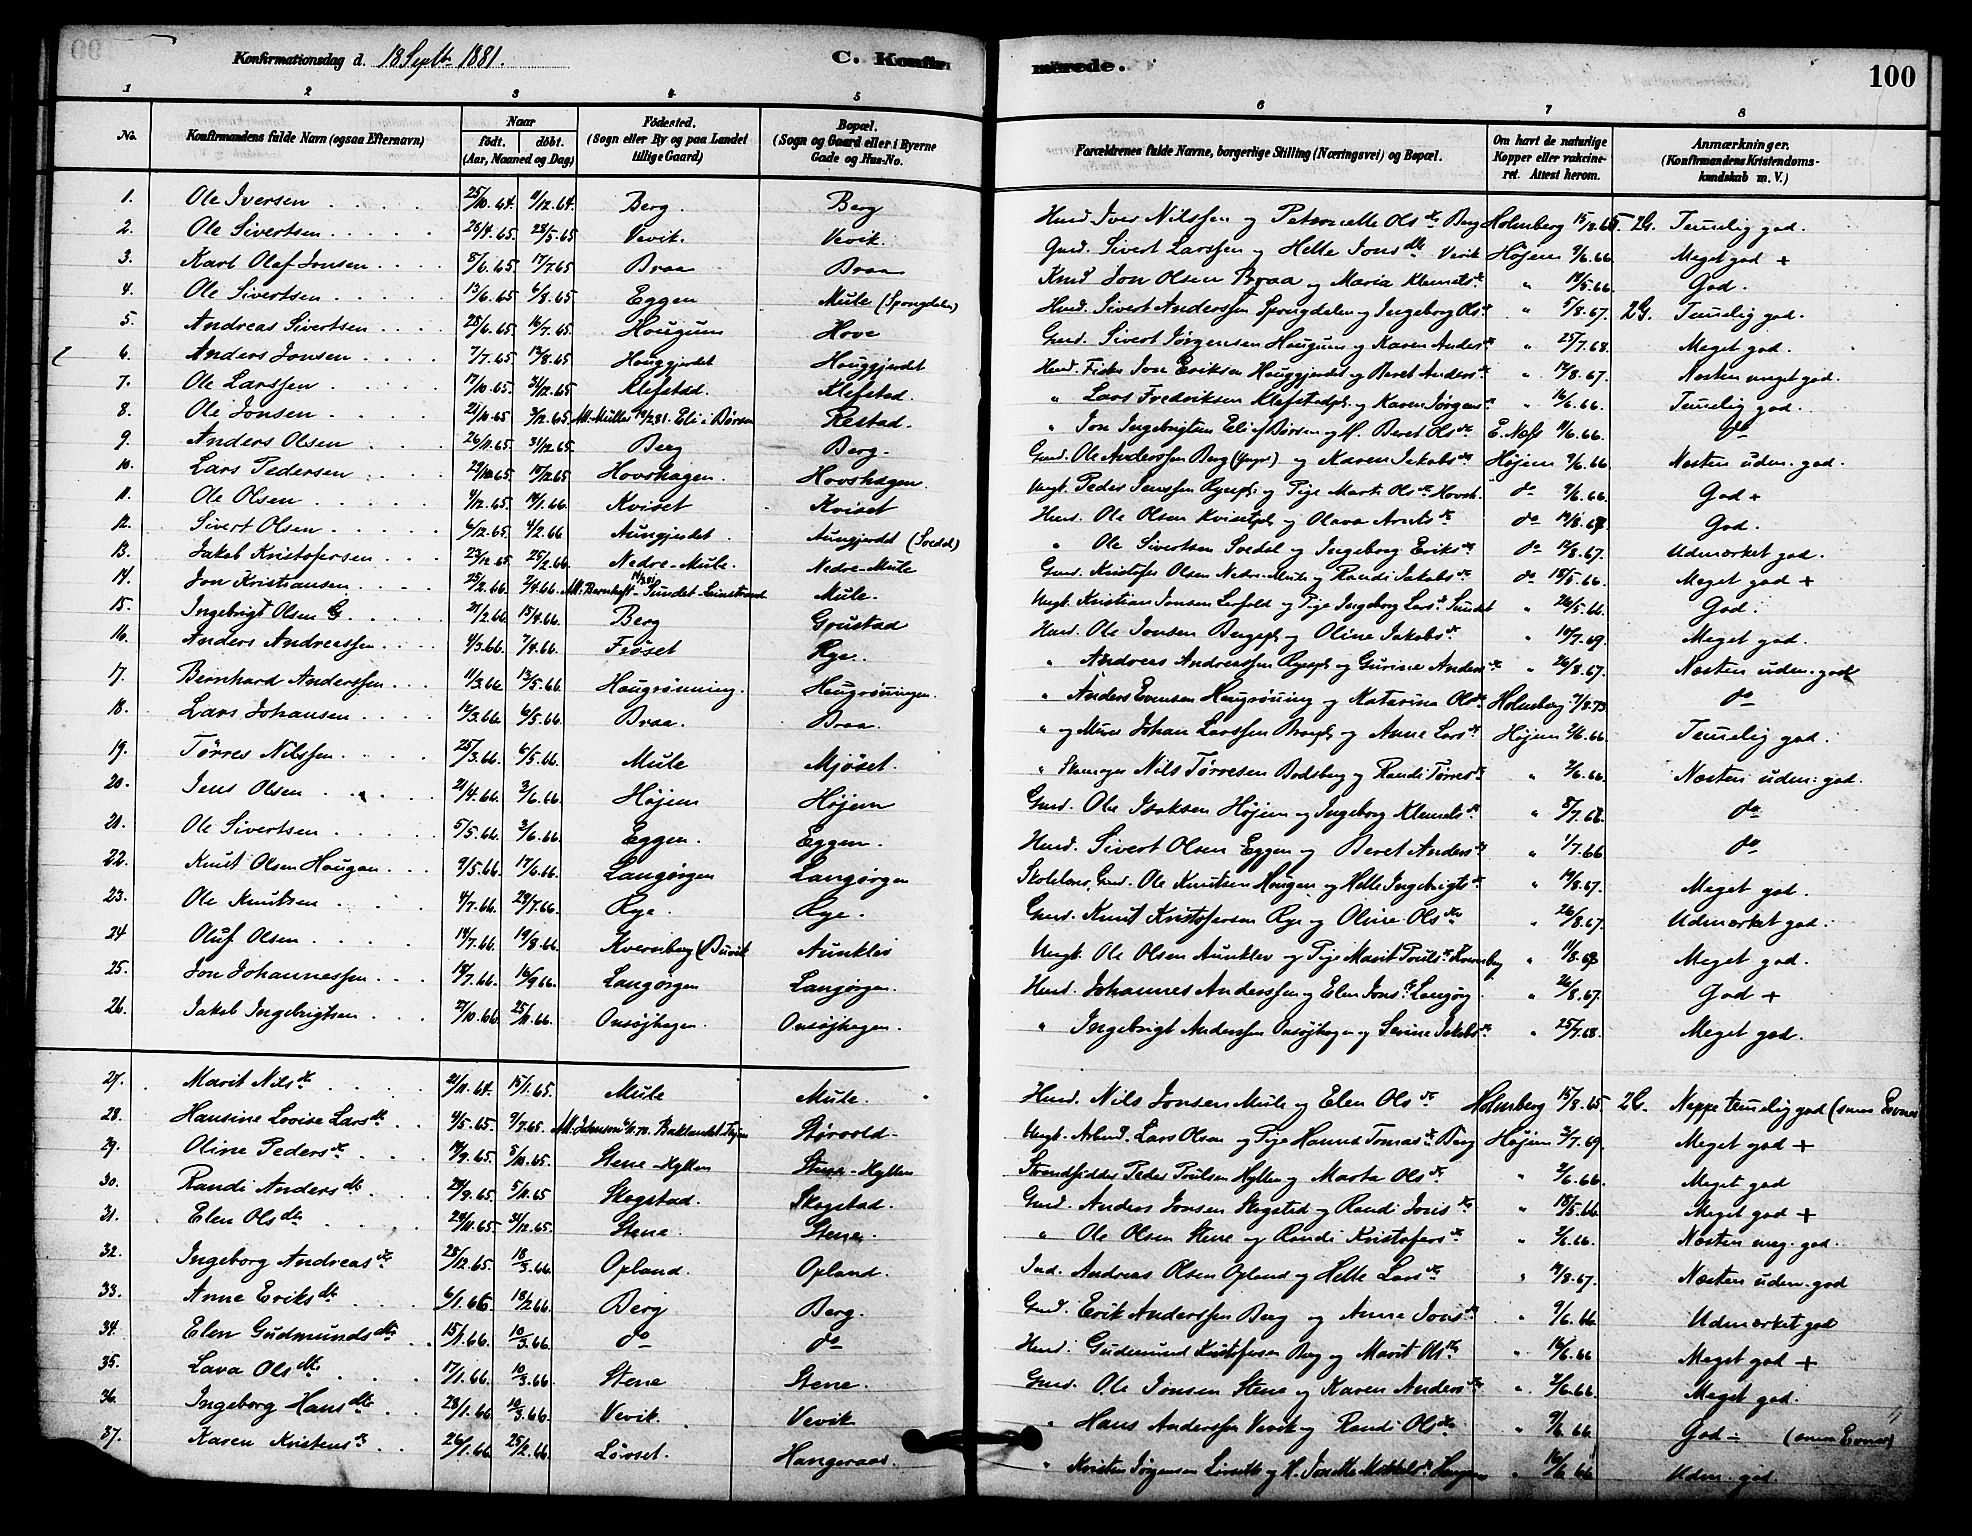 Konfirmationsdag d. 18 Septbr 1881.
C. Konfirmerede.
100
1 2 3 4 5 6 7 8
No.
Konfirmandens fulde Navn (ogsaa Efternavn)
Naar
født. døbt.
(Aar, Maaned og Dag)
Fødested.
(Sogn eller By og paa Landet tillige Gaard)
Bopæl.
(Sogn og Gaard eller i Byerne Gade og Hus-No.
Forældrenes fulde Navne, borgerlige Stilling (Næringsvei) og Bopæl.
Om havt de naturlige Kopper eller vakcineret. Attest herom.
Anmærkninger.
(Konfirmandens Kristendomskundskab m. V.)
1. Ole Iversen 25/10.64. 11/12.64. Berg. Berg Hmd. Iver Nilssen og Petronelle Olsdtr Berg Holmberg 15/8.65. 2G. Temelig god.
2. Ole Sivertsen 28/4.65. 28/5.65 Vevik. Vevik. Gmd. Sivert Larssen og Helle Jonsdtr Vevik Højem 9/6.66. Meget god +
3. Karl Olaf Jonsen 5/6.65. 17/7.65 Braa Braa Jon Olsen Braa og Maria Klemetsdtr " 18/5.66. God.
4. Ole Sivertsen 13/6.65 6/8.65 Eggen Mule (Spongdalen) Hmd. Sivert Anderssen Spongdalen og Ingeborg Olsdtr " 5/8.67. 2G. Temelig god.
5. Andreas Sivertsen 28/6.65 16/7.65. Hougum Hove Gmd. Sivert Jørgensen Hougum og Karen Andersdtr " 25/7.68. Meget god.
6. Anders Jonsen 7/7.65 13/8.65 Houggjerdet Houggjerdet Hmd. Fisker Jon Eriksen Houggjerdet og Beret Andersdtr " 12/8.67. Næsten meget god.
7. Ole Larssen 17/10.65. 31/12.65 Klefstad. Klefstad. " Lars Fredriksen Klefstadpl. og Karen Jørgensdtr " 16/6.66. Temelig god.
8. Ole Jonsen 25/10.65 3/12.65 Eli i Børsen Restad. " Jon Ingebrigtsen Eli af Børsen og H. Beret Olsdtr E. Næss 11/6.66. do
9. Anders Olsen 26/11.65. 31/12.65. Berg Berg. Gmd. Ole Anderssen Berg og Karen Jakobsdtr Højem 9/6.66 Næsten udm. god.
10. Lars Pedersen 29/10.65 10/12.65 Hovshagen. Hovshagen. Ungk. Peder Jenssen Ryepl. og Pige Marit Olsdtr Hovsh. do 9/6.66. God +
11. Ole Olsen 4/12.65. 14/1.66. Kviset Kviset Hmd. Ole Olsen Kvisetpl. og Olava Arntsdtr do 12/8.67 God.
12. Sivert Olsen 6/12.65 4/2.66 Aungjerdet Aungjerdet (Svedal) " Ole Sivertsen Svedal og Ingeborg Eriksdtr do 12/8.67. Udmærket god.
13. Jakob Kristofersen 23/12.65 25/2.66. Nedre-Mule. Nedre-Mule Gmd. Kristofer Olsen Nedre-Mule og Randi Jakobsdtr do 18/5.66. Meget god +
14. Jon Kristiansen 25/2.66. 2/4.66. Sundet-Leinstrand Mule. Ungk. Kristian Jonsen Lerfald og Pige Ingeborg Larsdtr Sundet " 26/5.66. God.
15. Ingebrigt Olsen G 21/2.66. 15/4.66. Berg Groustad Hmd. Ole Jonsen Bergspl. og Oline Jakobsdtr " 10/7.69. Meget god.
16. Anders Andreassen 4/3.66. 7/4.66. Frøset Rye. " Andreas Andreassen Ryepl. og Gurine Andersdtr " 26/8.67. Næsten udm. god
17. Bernhard Anderssen 11/3.66 13/5.66. Hougrønning. Hougrønningen. " Anders Evensen Hougrønning og Katarina Olsdtr Holmberg 7/8.73 do
18. Lars Johansen 12/3.66. 6/5.66. Braa. Braa. " og Murer Johan Larssen Braapl. og Anne Larsdtr Højem 2/6.66. Temelig god.
19. Tørres Nilssen 25/3.66. 6/5.66. Mule Mjøset. " Skomager Nils Tørresen Bodsberg og Randi Tørresdtr " 2/6.66. Næsten udm. god.
20. Jens Olsen 21/4.66. 3/6.66. Højem Højem Gmd. Ole Isaksen Højem og Ingeborg Klemetsdtr " 8/7.68. do
21. Ole Sivertsen 5/5.66. 3/6.66. Eggen. Eggen. Hmd. Sivert Olsen Eggen og Beret Andersdtr " 1/7.66 do
22. Knut Olsen Hougan 9/5.66. 17/6.66. Langørgen Langørgen Skolelærer, Gmd. Ole Knutsen Hougan og Helle Ingebrigtsdtr " 12/8.67. Meget god.
23. Ole Knutsen 4/7.66. 29/7.66. Rye. Rye. Gmd. Knut Kristofersen Rye og Oline Olsdtr " 26/8.67. Udmærket god.
24 Oluf Olsen 14/7.66. 19/8.66. Kvernberg (Buvik Aunklev Ungk. Ole Olsen Aunklev og Pige Marit Poulsdtr Kvernberg " 11/8.68 Meget god.
25. Jon Johannessen 14/7.66. 16/9.66. Langørgen Langørgen. Hmd. Johannes Anderssen og Elen Jonsdtr Langørg. " 26/8.67. God +
26. Jakob Ingebrigtsen 2/10.66. 25/11.66. Onsøjhagen. Onsøjhagen. " Ingebrigt Anderssen Onsøjhagen og Serine Jakobsdtr " 25/7.68. Meget god.
27. Marit Nilsdtr 21/11.64. 15/1.65. Mule Mule. Hmd. Nils Jonsen Mule og Elen Olsdtr Holmberg 15/8.65 2G. Neppe temelig god (smaa Evner
28. Hansine Lovise Larsdtr 4/5.65. 9/7.65. Baklandet Størvold Ungk. Arbmd. Lars Olsen og Pige Hanna Tomasdtr Berg Højem 3/7.69. Meget god +
29. Oline Pedersdtr 14/9.65. 8/10.65. Stene-Hyllen Stene-Hyllen Strandsidder Peder Poulsen Hyllen og Marta Olsdtr " 2/6.66. Meget god
30. Randi Andersdtr 24/9.65 5/11.65 Skogstad. Skogstad. Gmd. Anders Jonsen Skogstad og Randi Jonsdtr " 18/5.66 Meget god +
31. Elen Olsdtr 24/11.65. 31/12.65. Stene. Stene. " Ole Olsen Stene og Randi Kristofersdtr " 2/6.66. Næsten meg. god.
32. Ingeborg Andreasdtr 28/12.65. 18/3.66. Opland. Opland. Ind. Andreas Olsen Opland og Helle Larsdtr " 12/8.67. Næsten udm. god
33. Anne Eriksdtr 6/1.66 18/2.66. Berg Berg. Gmd. Erik Anderssen Berg og Anne Jonsdtr " 9/6.66 Udmærket god
34. Elen Gudmundsdtr 15/1.66. 10/3.66. do do Hmd. Gudmund Kristofersen Berg og Marit Olsdtr " 16/6.66 Meget god +
35. Lava Olsdtr 17/1.66. 10/3.66. Stene Stene. Gmd. Ole Jonsen Stene og Karen Andersdtr " 2/6.66. Meget god.
36. Ingeborg Hansdtr 28/1.66 10/3.66. Vevik. Vevik " Hans Anderssen Vevik og Randi Olsdtr " 9/6.66. God - (smaa Evner)
37. Karen Kristensdtr 26/1.66 25/2.66. Lørset. Hangeraas. " Kristen Jørgensen " 16/6.66 Udm. god.